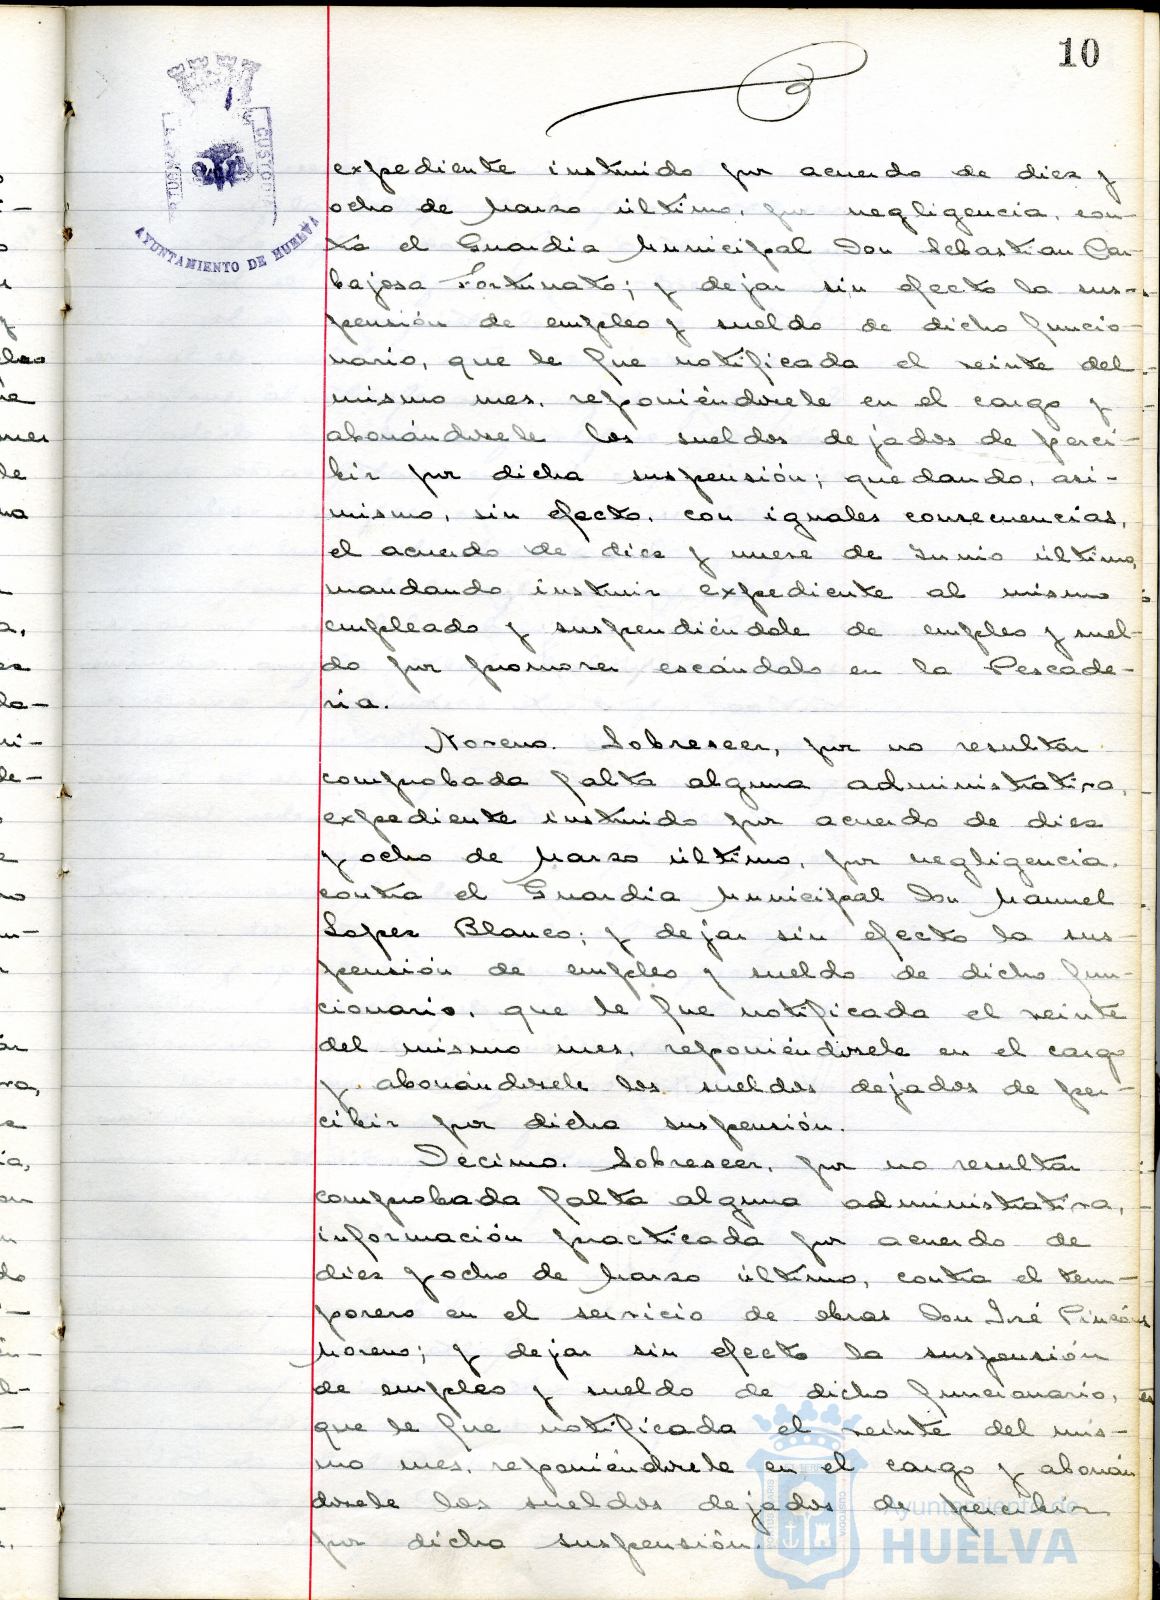 10
AYUNTAMIENTO DE HUELVA
expediente instruido por acuerdo de diez y
ocho de Marzo último, por negligencia, con-
tra el Guardia Municipal Don Sebastian Car-
bajosa Fortunato; y dejar sin efecto la sus-
pensión de empleo y sueldo de dicho funcio-
nario, que le fue notificada el veinte del
mismo mes, reponiéndosele en el cargo y
abonándosele los sueldos dejados de perci-
bir por dicha suspensión; quedando, asi-
mismo, sin efecto, con iguales consecuencias,
el acuerdo de diez y nueve de Junio último,
mandando instruir expediente al mismo
empleado y suspendiéndole de empleo y suel-
do por promover escándalo en la Pescade-
ría.
Noveno. Sobreseer, por no resultar
comprobada falta alguna administrativa,
expediente instruido por acuerdo de diez
y ocho de Marzo último, por negligencia,
contra el Guardia Municipal Don Manuel
Lopez Blanco; y dejar sin efecto la sus-
pensión de empleo y sueldo de dicho fun-
cionario, que le fue notificada el veinte
del mismo mes, reponiéndosele en el cargo
y abonándosele los sueldos dejados de per-
cibir por dicha suspensión.
Decimo. Sobreseer, por no resultar
comprobada falta alguna administrativa,
información practicada por acuerdo de
diez y ocho de Marzo último, contra el tem-
porero en el servicio de obras Don José Pinzón
Moreno; y dejar sin efecto la suspensión
de empleo y sueldo de dicho funcionario,
que le fue notificada el veinte del mis-
mo mes, reponiéndosele en el cargo y abonán
dosele los sueldos dejados de percibir
por dicha suspensión.
Ayuntamiento de
HUELVA